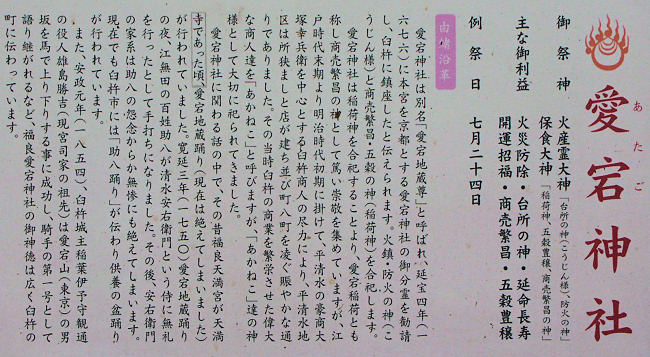 愛宕神社
あたご
御祭神　火産霊大神「台所の神(こうじん様)、防火の神」
保食大神「稲荷神、五穀豊穣、商売繁昌の神」
主な御利益　火災防除・台所の神・延命長寿
開運招福・商売繁昌・五穀豊穣
例祭日　七月二十四日
由緒沿革
愛宕神社は別名「愛宕地蔵尊」と呼ばれ、延宝四年(一
六七六)に本宮を京都とする愛宕神社の御分霊を勧請
し、臼杵に鎮座したと伝えられます。火鎮・防火の神(こ
うじん様)と商売繁昌・五穀の神(稲荷神)を合祀します。
愛宕神社は稲荷神を合祀することより、愛宕稲荷とも
称し商売繁昌の神として篤い崇敬を集めていますが、江
戸時代末期より明治時代初期に掛けて、平清水の豪商大
塚幸兵衛を中心とする臼杵商人の尽力により、平清水地
区は所狭ましと店が建ち並び町八町を凌ぐ賑やかな通
りでありました。その当時臼杵の商業を繁栄させた偉大
な商人達を「あかねこ」と呼びますが、「あかねこ」達の神
様として大切に祀られてきました。
愛宕神社に関わる話の中で、その昔福良天満宮が天満
寺であった頃、愛宕地蔵踊り(現在は絶えてしまいました)
が行われていました。寛延三年(一七五〇)愛宕地蔵踊り
の夜、江無田の百姓助八が清水安右衛門という侍に無礼
を行ったとして手打ちになりました。その後、安右衛門
の家系は助八の怨念からか無惨にも絶えてしまいます。
現在でも臼杵市には「助八踊り」が伝わり供養の盆踊り
が行われています。
また、安政元年(一八五四)臼杵城主稲葉伊予守観通
の役人雄島勝吉(現宮司家の祖先)は愛宕山(東京)の男
坂を馬で上り下りする事に成功し、騎手の第一号として
語り継がれるなど、福良愛宕神社の御神徳は広く臼杵の
町に伝わっています。